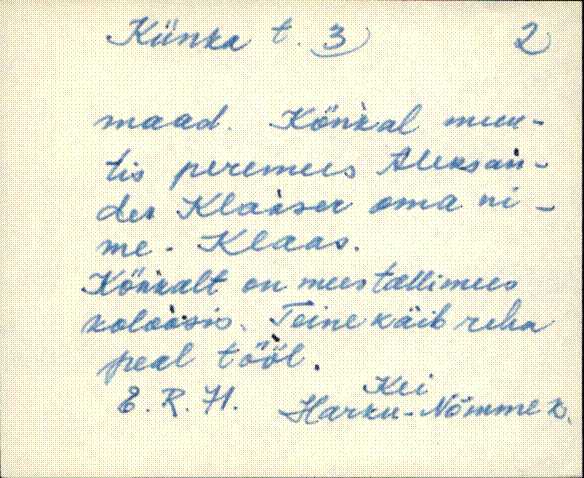 Künka t. 3) 2
maad. Könkal muu-
tis peremees Aleksan-
der Klaaser oma ni-
me - Klaas.
Könkalt on mees tallimees
koloosis. Teine käib reha
peal tööl.
E. R. 71. Kei
Harku-Nõmme k.